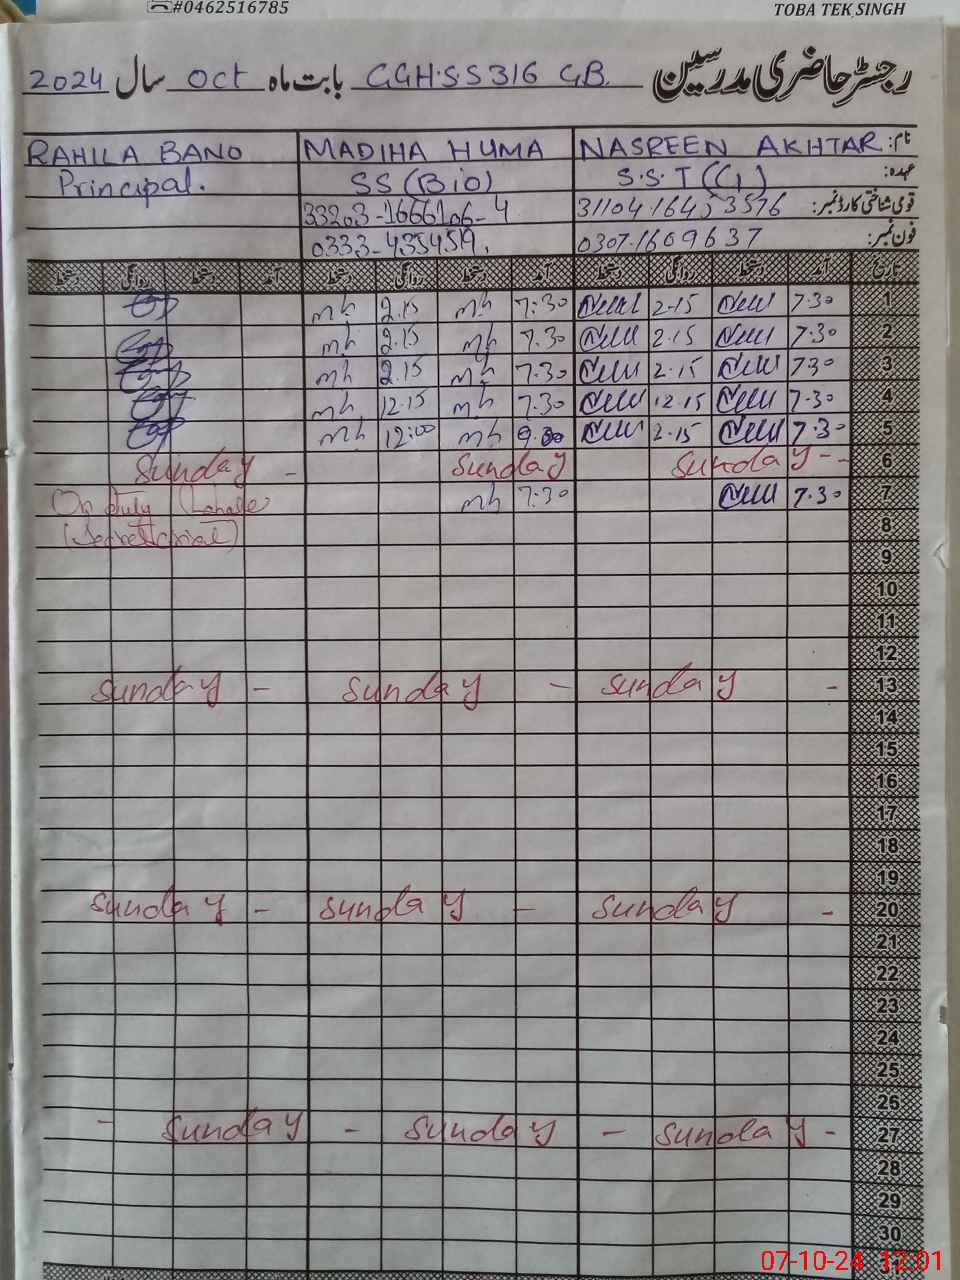 #0462516785 TOBA TEK SINGH
رجسٹر حاضری مدرسین GGH.SS 316 G.B. بابت ماہ Oct سال 2024
نام: NASREEN AKHTAR MADIHA HUMA RAHILA BANO
عہدہ: S.S.T (G) SS (Bio) Principal.
قومی شناختی کارڈ نمبر: 33203-1666106-4
فون نمبر: 0307-1609637
تاریخ آمد دستخط روانگی دستخط آمد دستخط روانگی دستخط آمد دستخط روانگی دستخط
1 7.30 2.15 7:30 mh 2.15 mh
2 7.30 2.15 7.30 mh 2.15 mh
3 7.30 2.15 7.30 mh 2.15 mh
4 7.30 12.15 7.30 mh 12.15 mh
5 7.30 2.15 mh 12:00 mh
6 Sunday -- Sunday Sunday -
7 7.30 7.30 mh On Duty
8
9
10
11
12
13 - Sunday - Sunday - Sunday
14
15
16
17
18
19
20 - Sunday - Sunday - Sunday
21
22
23
24
25
26
27 - Sunday - Sunday - Sunday -
28
29
30
31
07-10-24 12:01